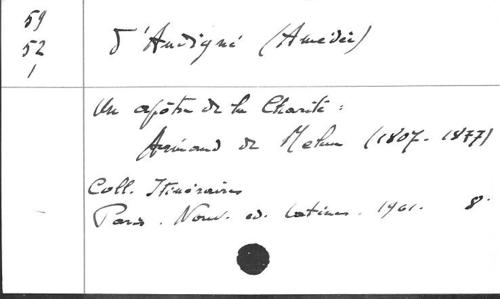 59
52
1
D'Andigné (Amédée)
Un apôtre de la Charité :
Armand de Melun (1807-1877)
Coll. Itinéraires
Paris. Nouv. ed. latines. 1961. 8°